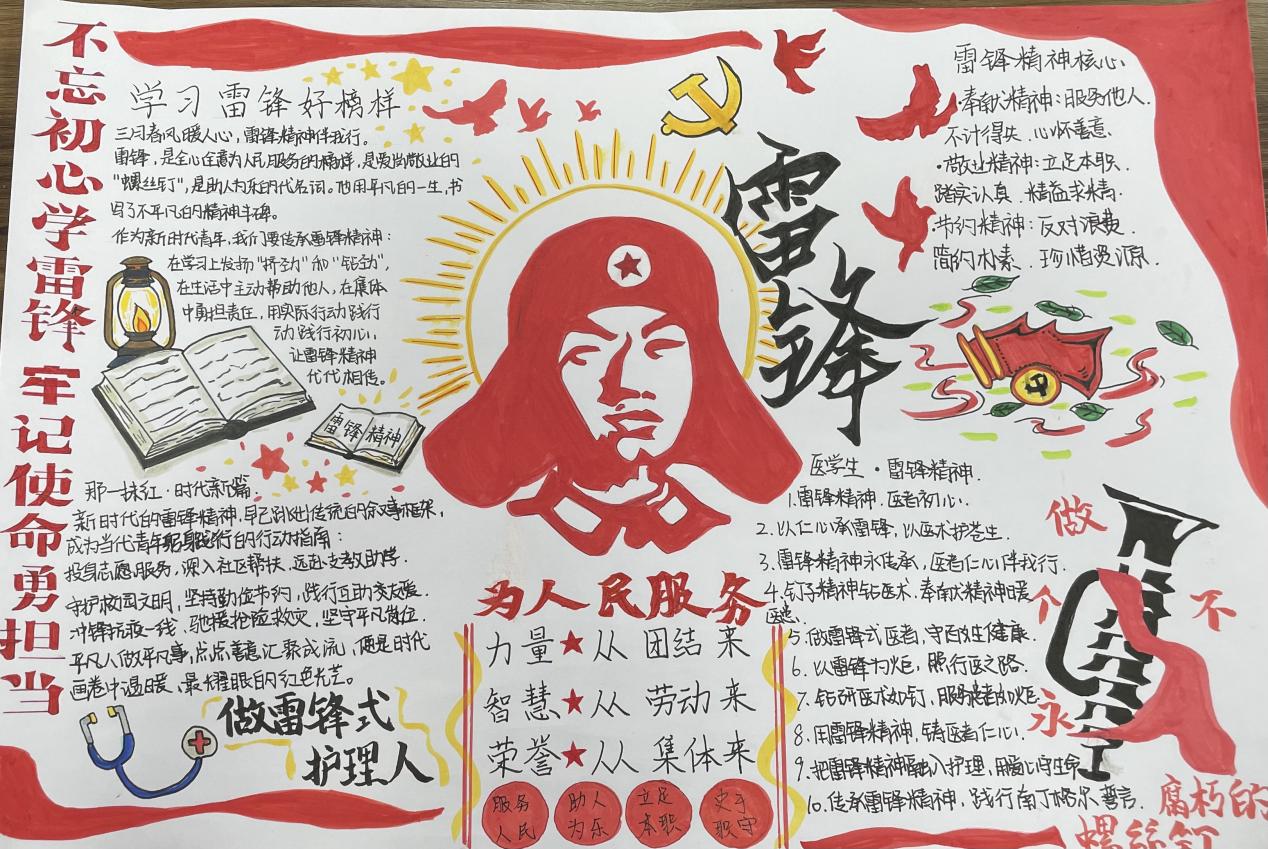 不忘初心学雷锋 牢记使命勇担当
学习雷锋好榜样
三月春风暖人心，雷锋精神伴我行。
雷锋，是全心全意为人民服务的榜样，是爱岗敬业的
"螺丝钉"，是助人为乐的代名词。他用平凡的一生，书
写了不平凡的精神丰碑。
作为新时代青年，我们要传承雷锋精神：
在学习上发扬"挤劲"和"钻劲"，
在生活中主动帮助他人，在集体
中勇担责任，用实际行动践行
动践行初心，
让雷锋精神
代代相传。
雷锋精神
那一抹红·时代新篇
新时代的雷锋精神，早已跳出传统的叙事框架，
成为当代青年践行的行动指南：
投身志愿服务，深入社区帮扶，远赴支教助学.
守护校园文明，坚持勤俭节约，践行互助友爱.
冲锋抗疫一线，驰援抢险救灾，坚守平凡岗位.
平凡人做平凡事，点点善意汇聚成流，便是时代
画卷中温暖，最耀眼的红色光芒。
做雷锋式
护理人
雷锋
为人民服务
力量★从 团结 来
智慧★从 劳动 来
荣誉★从 集体来
服务
人民
助人
为乐
立足
本职
职守
雷锋精神核心
·奉献精神：服务他人.
不计得失.心怀善意.
·敬业精神：立足本职.
踏实认真.精益求精.
·节约精神：反对浪费.
简约朴素.珍惜资源.
医学生·雷锋精神.
1.雷锋精神.医者初心.
2.以仁心承雷锋，以医术护苍生.
3.雷锋精神永传承，医者仁心伴我行.
4.钉子精神钻医术.奉献精神暖
医患.
5.做雷锋式医者，守百姓健康.
6.以雷锋为炬，照行医之路.
7.钻研医术如钉，服务患者如炬.
8.用雷锋精神，铸医者仁心.
9.把雷锋精神融入护理，用爱心守生命
10.传承雷锋精神，践行南丁格尔誓言.
做
个
永
不
腐朽的
螺丝钉